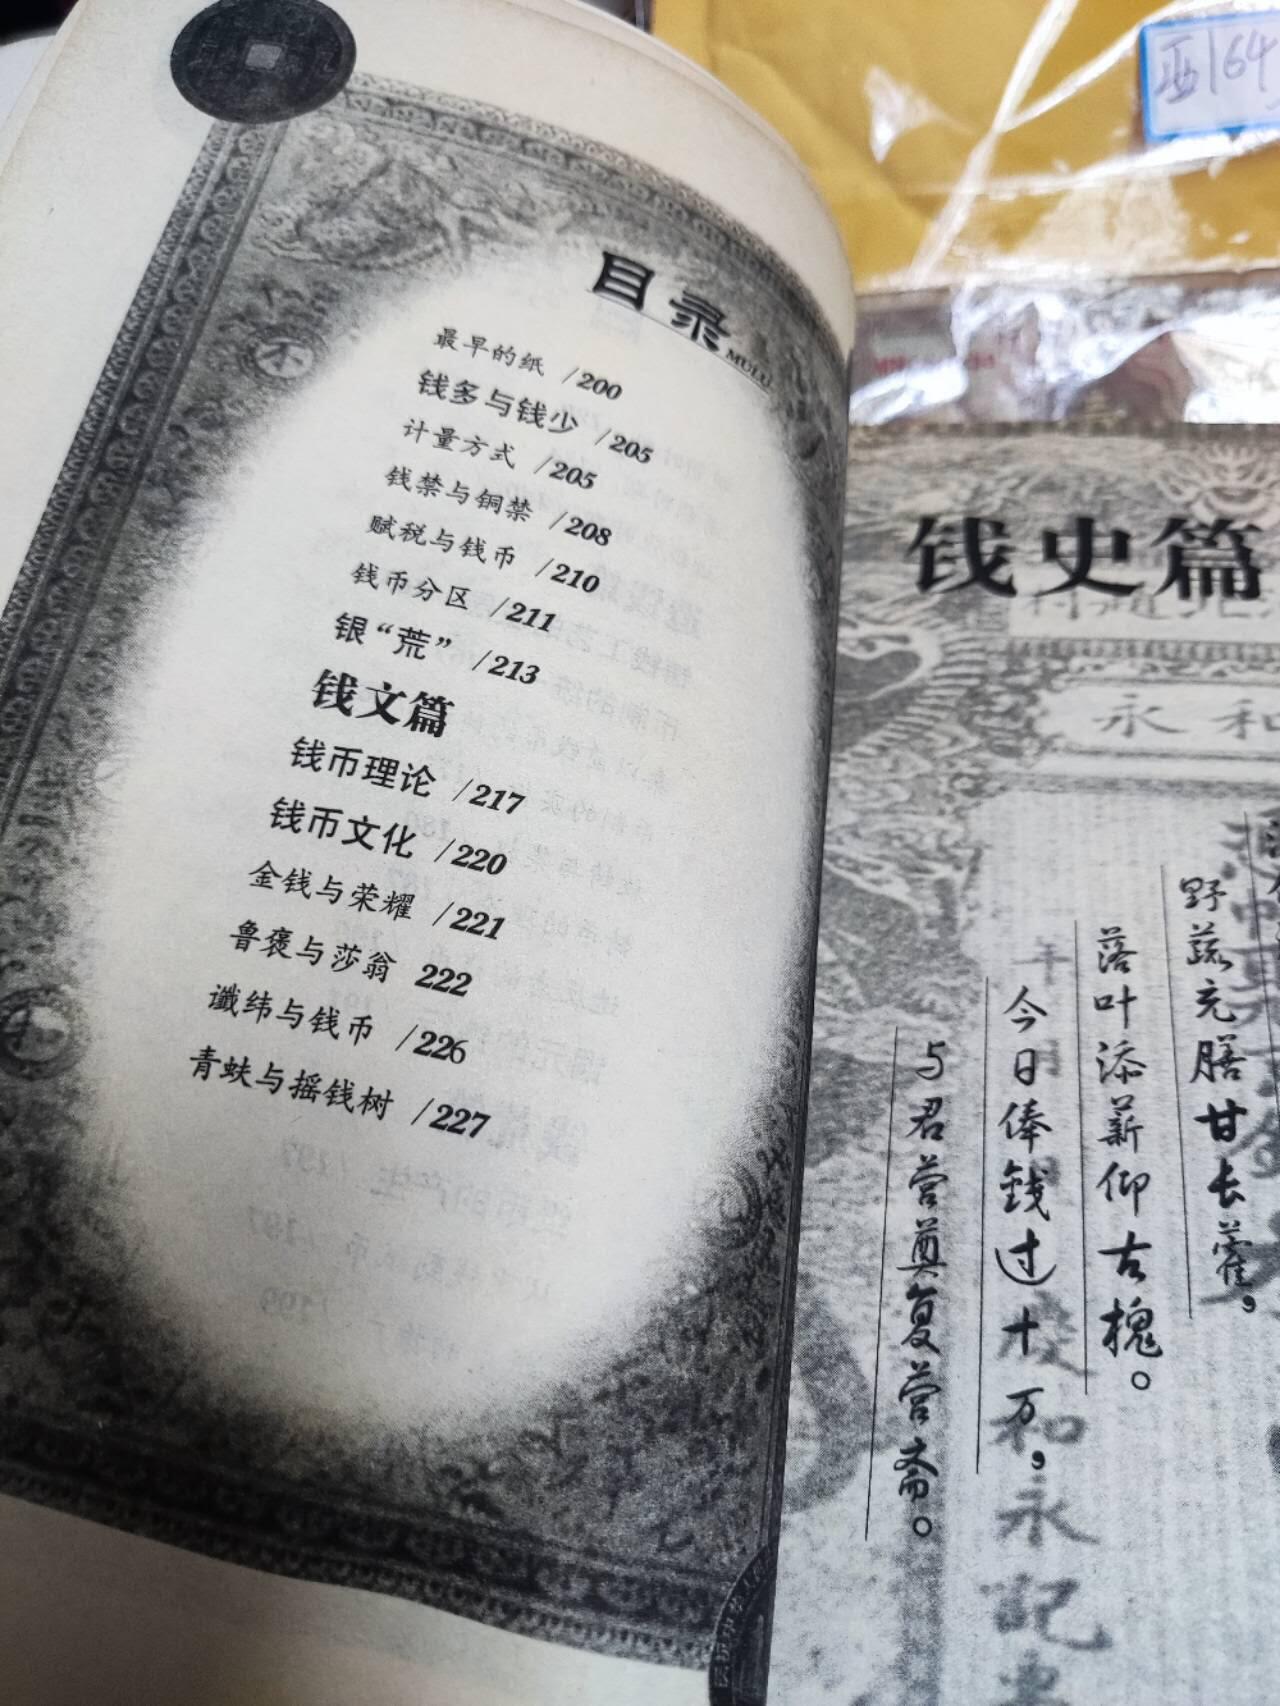 目录
MULU
最早的纸 /200
钱多与钱少 /205
计量方式 /205
钱禁与铜禁 /208
赋税与钱币 /210
钱币分区 /211
银“荒” /213
钱文篇
钱币理论 /217
钱币文化 /220
金钱与荣耀 /221
鲁褒与莎翁 222
谶纬与钱币 /226
青蚨与摇钱树 /227
西164
钱史篇
永和
野蔬充膳甘长藿，
落叶添薪仰古槐。
今日俸钱过十万，
与君营奠复营斋。